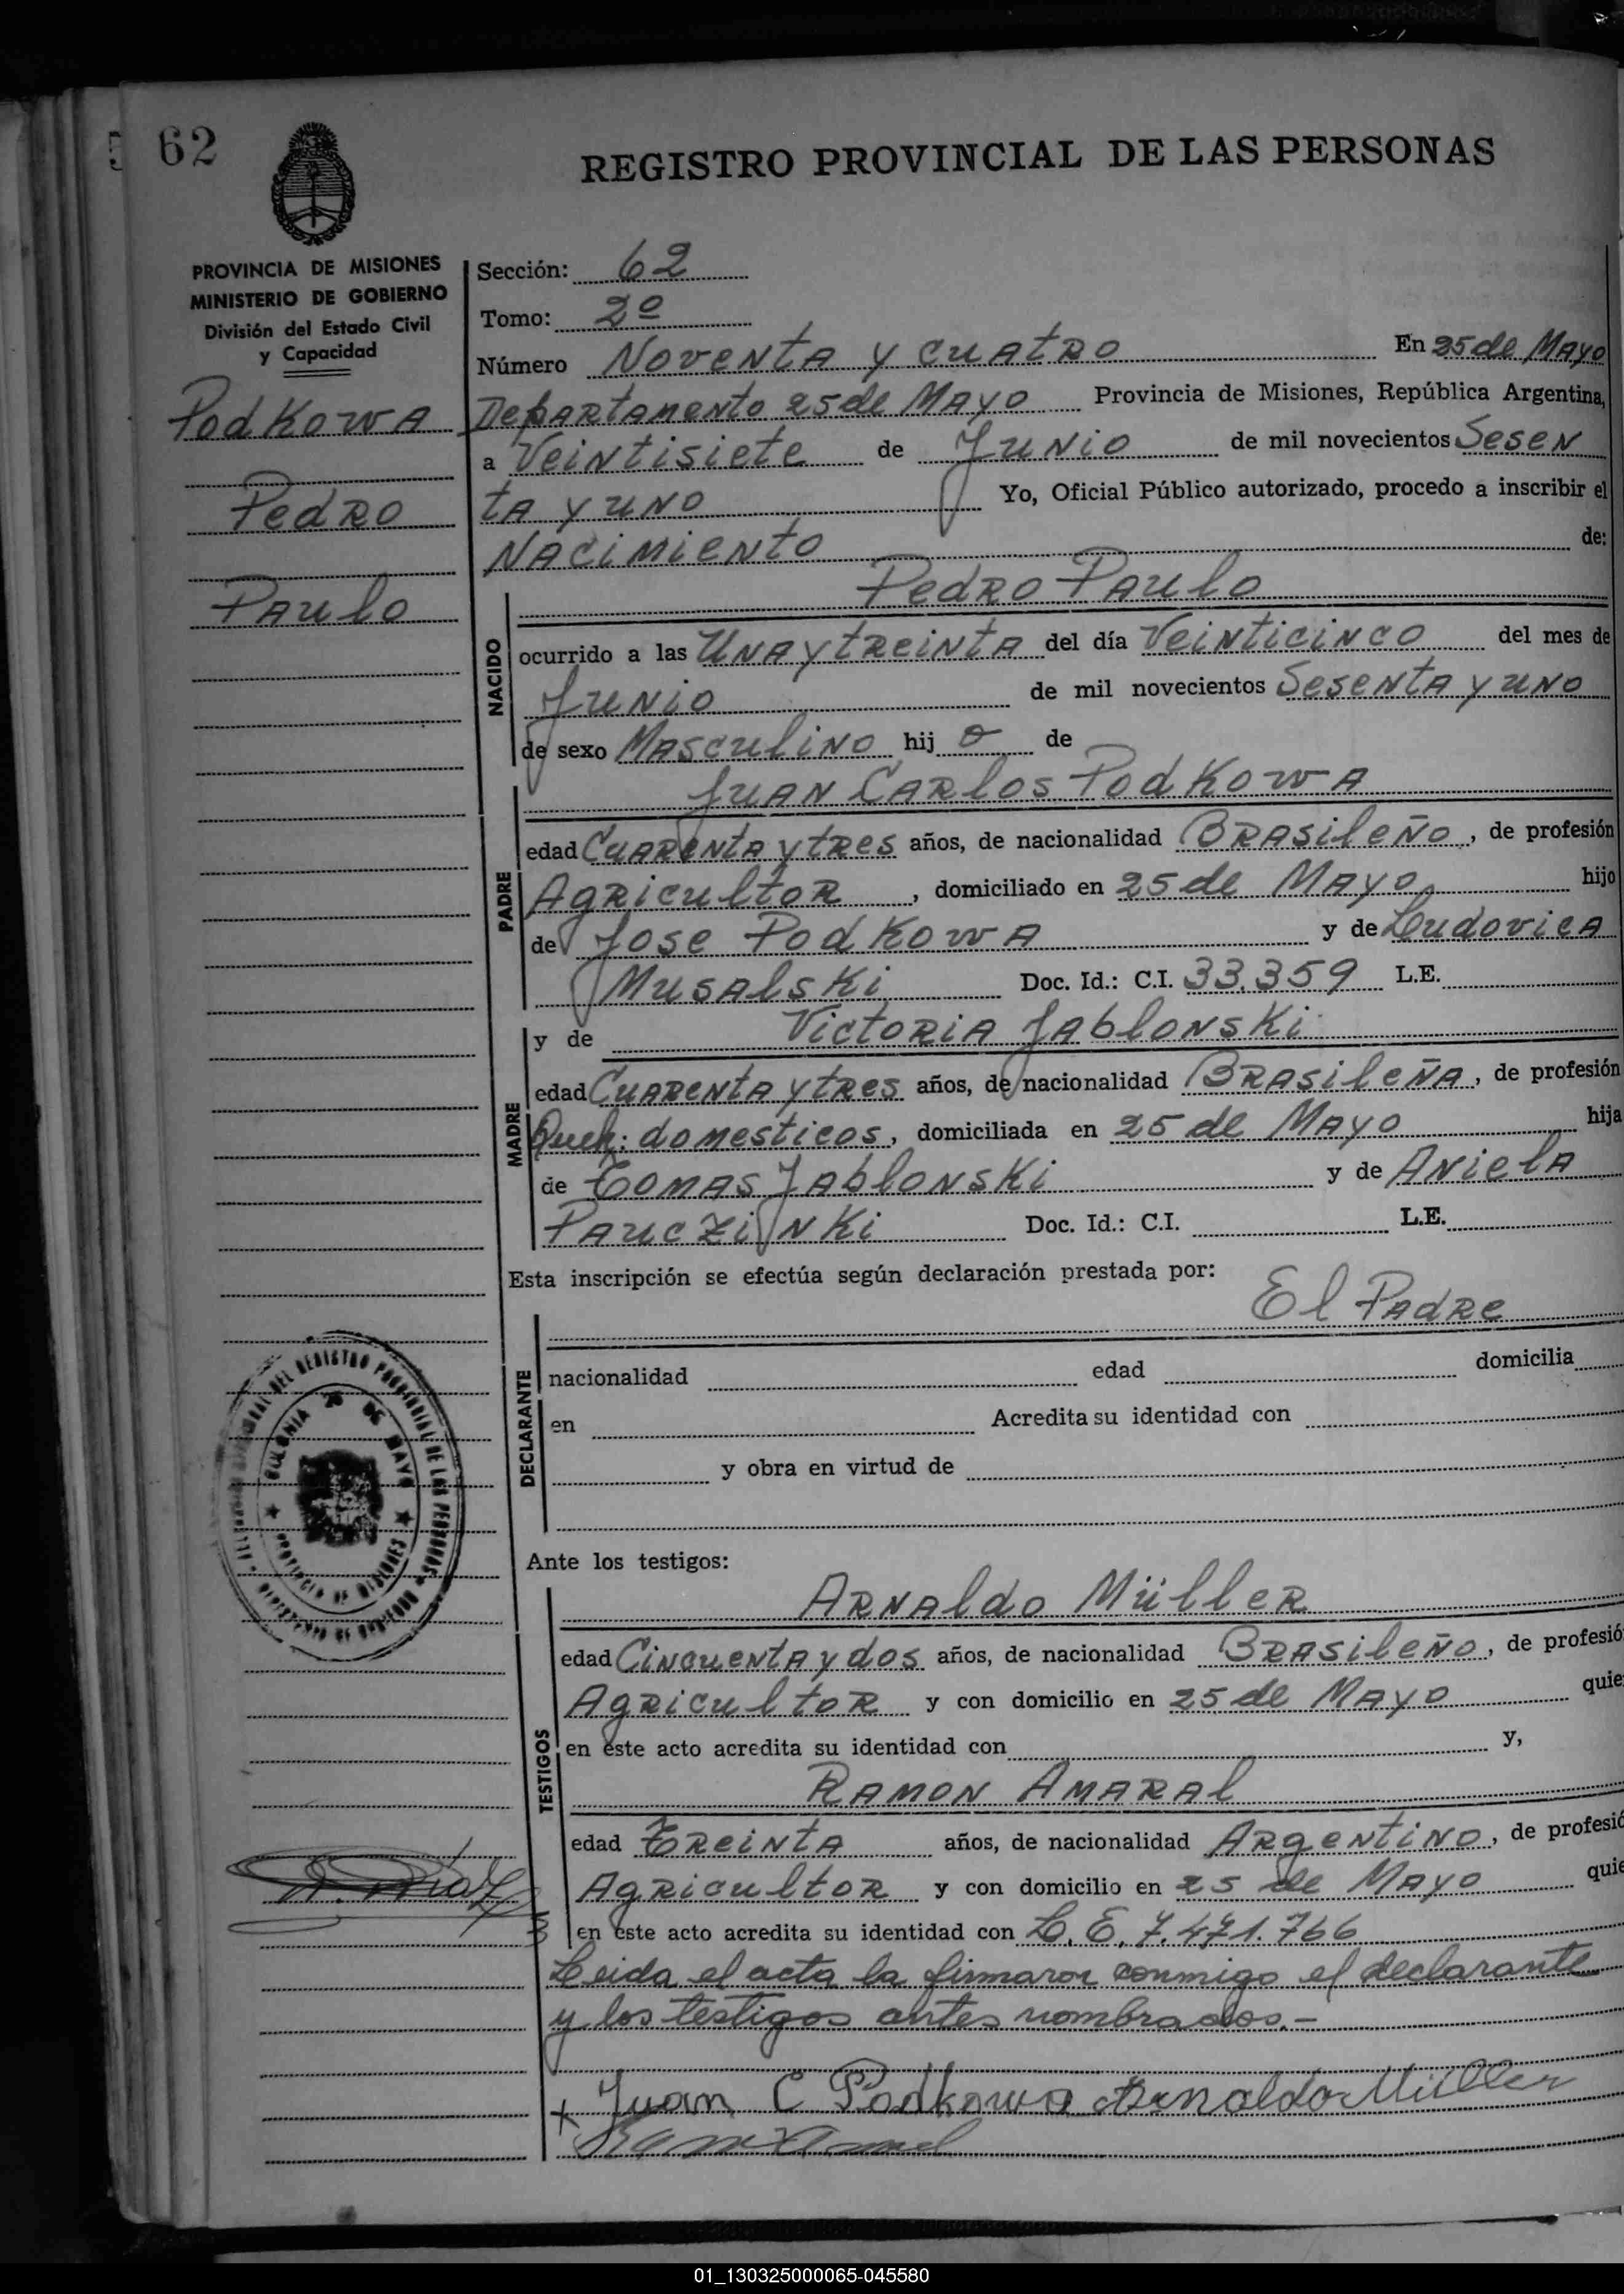 62
REGISTRO PROVINCIAL DE LAS PERSONAS
PROVINCIA DE MISIONES
MINISTERIO DE GOBIERNO
División del Estado Civil
y Capacidad
Podkowa
Pedro
Paulo
Sección: 62
Tomo: 2º
Número Noventa y cuatro En 25 de Mayo
Departamento 25 de Mayo Provincia de Misiones, República Argentina,
a Veintisiete de Junio de mil novecientos Sesen
ta y uno Yo, Oficial Público autorizado, procedo a inscribir el
Nacimiento de:
NACIDO
Pedro Paulo
ocurrido a las Una y treinta del día Veinticinco del mes de
Junio de mil novecientos Sesenta y uno
de sexo Masculino hij o de
PADRE
Juan Carlos Podkowa
edad Cuarenta y tres años, de nacionalidad Brasileño, de profesión
Agricultor, domiciliado en 25 de Mayo, hijo
de Jose Podkowa y de Ludovica
Musalski Doc. Id.: C.I. 33.359 L.E.
MADRE
y de Victoria Jablonski
edad Cuarenta y tres años, de nacionalidad Brasileña, de profesión
Queh: domesticos, domiciliada en 25 de Mayo hija
de Tomas Jablonski y de Aniela
Pauczinki Doc. Id.: C.I. L.E.
Esta inscripción se efectúa según declaración prestada por:
El Padre
DECLARANTE
nacionalidad edad domicilia
en Acredita su identidad con
y obra en virtud de
COLONIA 25 DE MAYO
PROVINCIA DE MISIONES
Ante los testigos:
TESTIGOS
Arnaldo Müller
edad Cincuenta y dos años, de nacionalidad Brasileño, de profesió
Agricultor y con domicilio en 25 de Mayo quie
en este acto acredita su identidad con y,
Ramon Amaral
edad Treinta años, de nacionalidad Argentino, de profesió
Agricultor y con domicilio en 25 de Mayo quie
en este acto acredita su identidad con L.E. 7.471.766
Leida el acta la firmaron conmigo el declarante
y los testigos antes nombrados.-
x Juan C Podkowa Arnaldo Müller
01_130325000065-045580